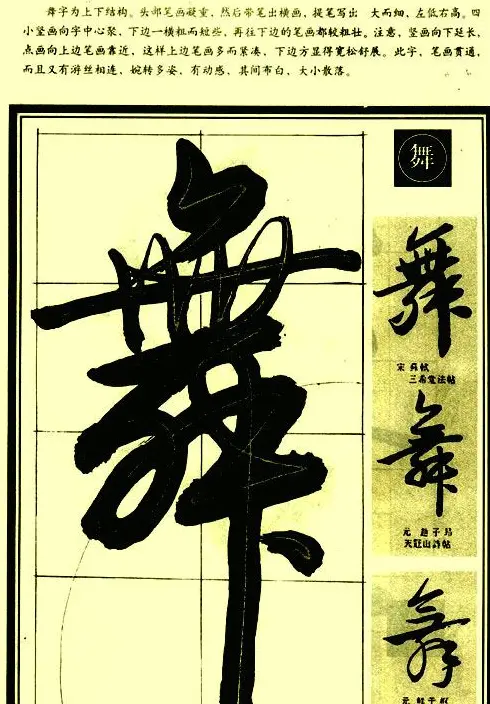 舞字为上下结构。头部笔画凝重，然后带笔出横画，提笔写出 大而细，左低右高。四
小竖画向字中心聚，下边一横粗而短些，再往下边的笔画都较粗壮。注意，竖画向下延长，
点画向上边笔画靠近，这样上边笔画多而紧凑，下边方显得宽松舒展。此字，笔画贯通，
而且又有游丝相连，婉转多姿，有动感，其间布白，大小散落。
舞
舞
舞
宋 蘇軾
三希堂法帖
舞
元 趙子昂
天冠山詩帖
舞